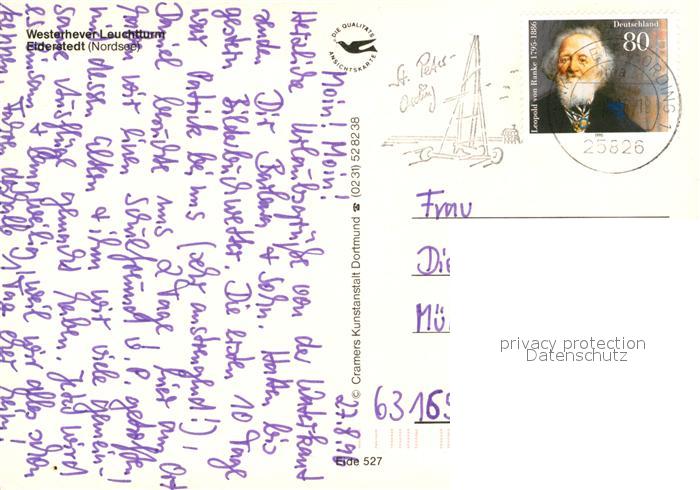 Westerhever Leuchtturm
Eiderstedt (Nordsee)
DIE QUALITÄTS
ANSICHTSKARTE
St. Peter-
Ording
Leopold von Ranke 1795-1886
Deutschland
80
1995
25826
© Cramers Kunstanstalt Dortmund ☎ (0231) 528238
Eide 527
27.8.96
Moin! Moin!
Herzliche Urlaubsgrüße von der Waterkant
senden Dir Barbara + Sohn. Hatten bis
gestern Bilderbuchwetter. Die ersten 10 Tage
war Patrick bei uns (sehr anstrengend!),
Daniel besuchte uns 2 Tage. Hier am Ort
haben wir einen Schulfreund v. P. getroffen
mit dessen Eltern + ihm wir viele gemein-
same Ausflüge gemacht haben. Jetzt wird
es einsam + langweilig, weil wir alles schon
kennen. Fahren deshalb 1 Tag eher heim!
Frau
Die
Mü
63165
privacy protection
Datenschutz